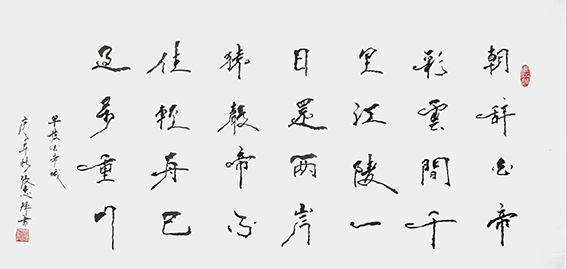 朝辞白帝
彩雲間千
里江陵一
日還兩岸
猿聲啼不
住輕舟已
過萬重山
早發白帝城
庚子年秋